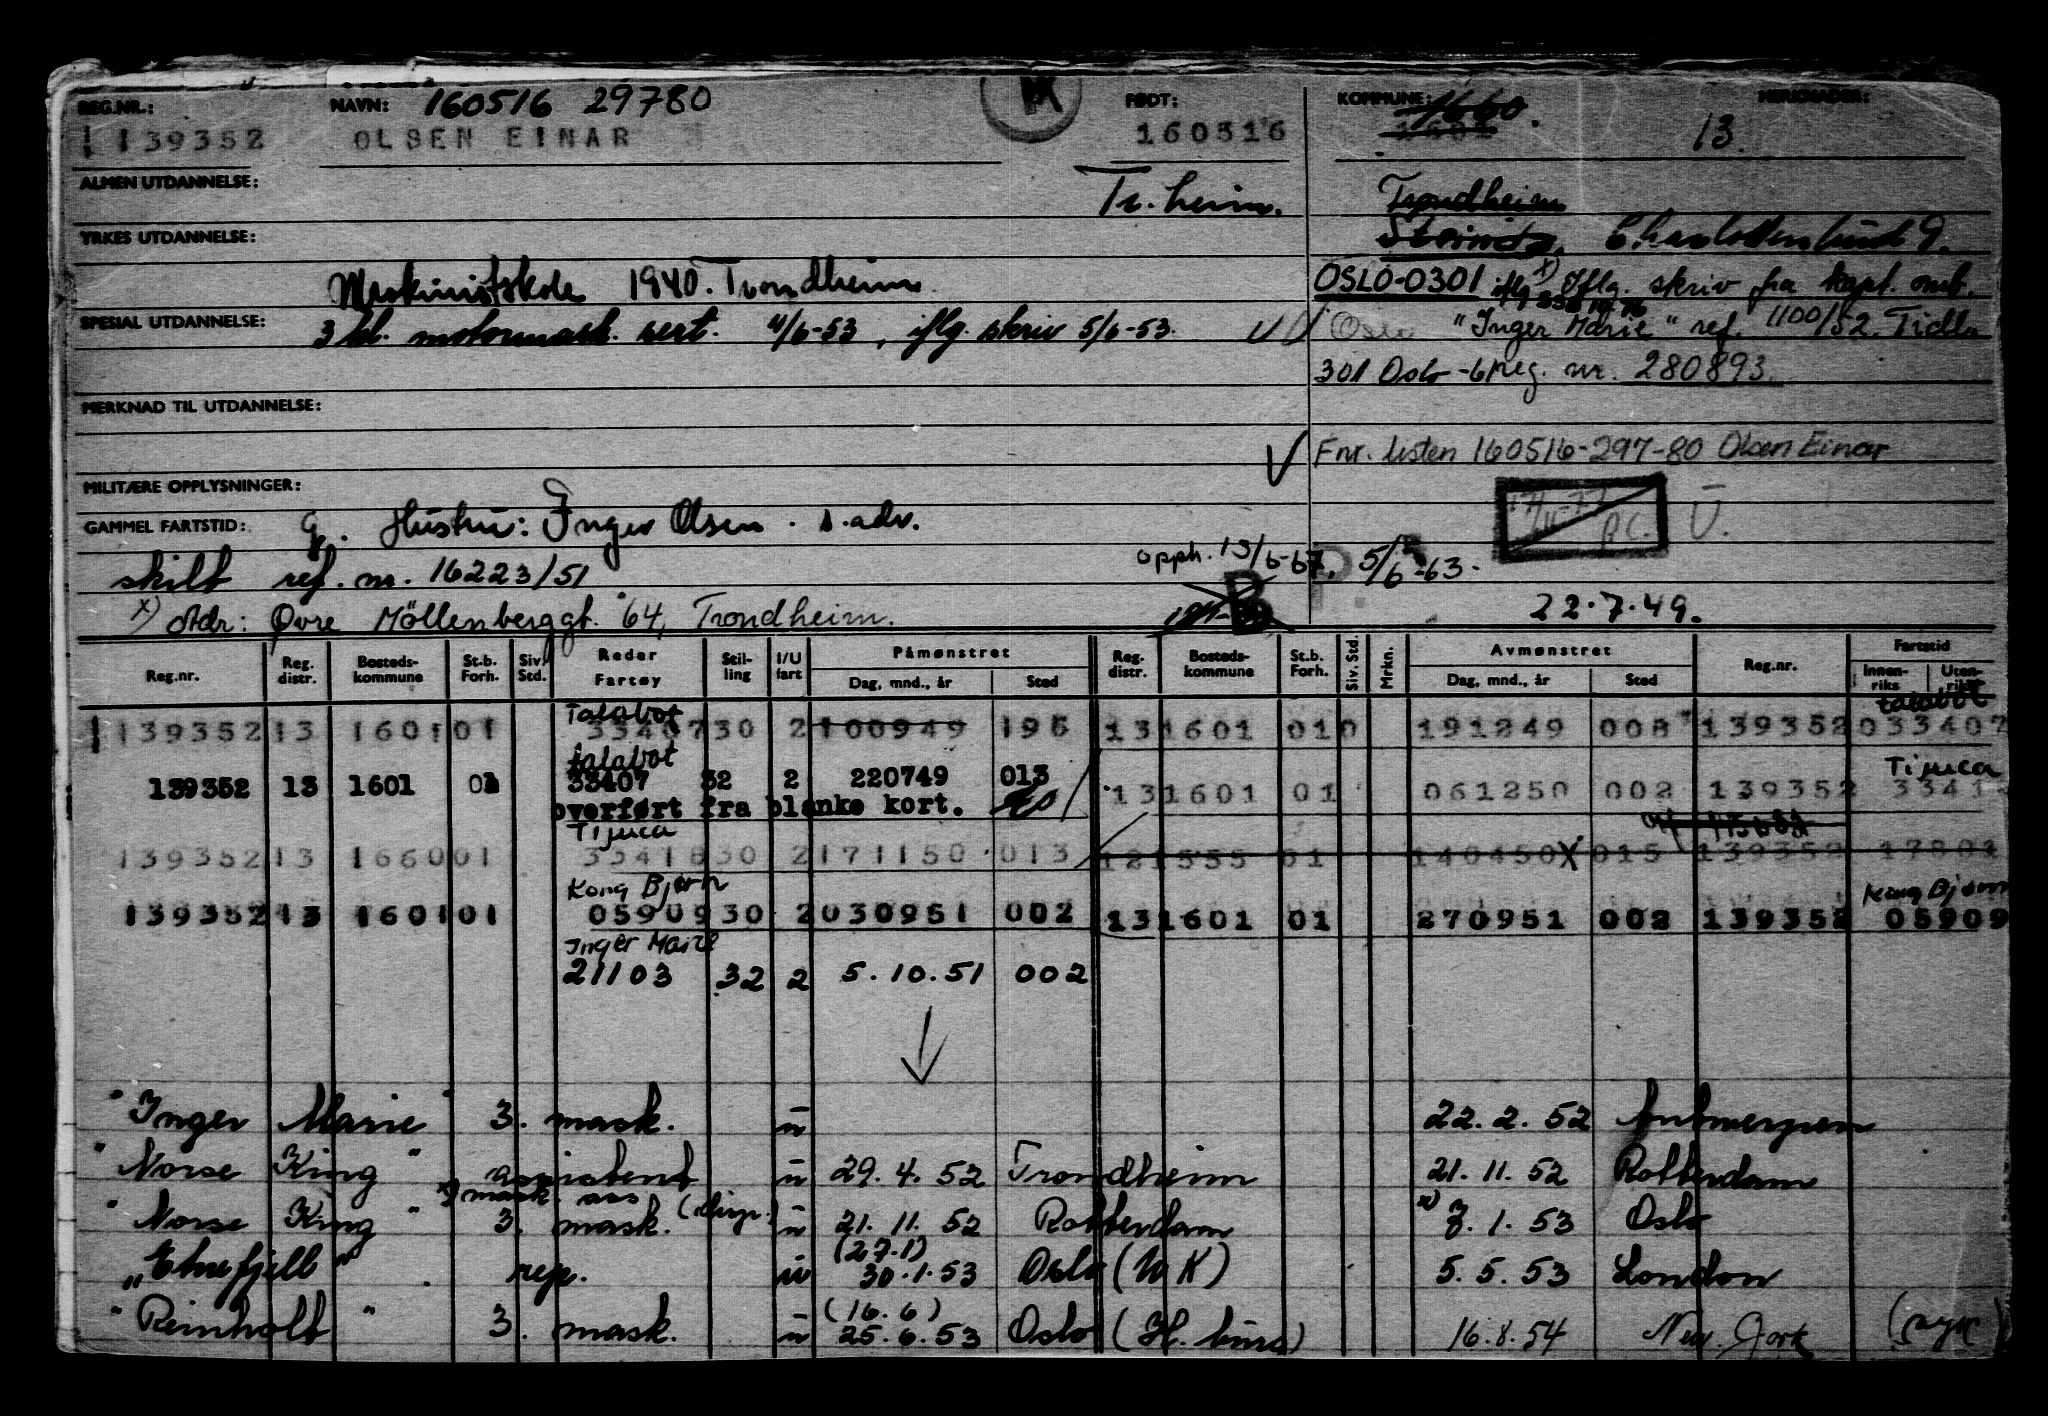 REG.NR.: NAVN: 160516 29780 FØDT: KOMMUNE: 1660. MERKNADER:
139352 OLSEN EINAR 160516 13.
ALMEN UTDANNELSE: Tr.heim. Trondheim
YRKES UTDANNELSE: Strinda, Charlottenlund 9.
Maskinistskole 1940. Trondheim OSLO-0301 x) Iflg. skriv fra kapt. omb.
SPESIAL UTDANNELSE: 3 kl. motormask. sert. 4/6-53, iflg. skriv 5/6-53. Oslo "Inger Marie" ref. 1100/52. Tidl.
301 Oslo reg. nr. 280893.
MERKNAD TIL UTDANNELSE:
Fnr. listen 160516-297-80 Olsen Einar
MILITÆRE OPPLYSNINGER:
GAMMEL FARTSTID: g. Hustru: Inger Olsen. s. adv. Ū.
skilt ref. nr. 16223/51 opph. 13/6-67. P. 5/6-63.
x) Adr: Øvre Möllenberggt. 64, Trondheim. B 22.7.49.
Reg.nr. Reg. distr. Bosteds-kommune St.b. Forh. Siv. Std. Reder Fartøy Stil-ling I/U fart Påmønstret Dag, mnd., år Sted Reg. distr. Bosteds-kommune St.b. Forh. Siv. Std. Mrkn. Avmønstret Dag, mnd., år Sted Reg.nr. Fartstid Innen-riks Uten-riks
Talabot talabot
139352 13 1601 01 33407 30 2 100949 195 13 1601 01 0 191249 008 139352 033407
talabot Tijuca
139352 13 1601 01 33407 32 2 220749 013 13 1601 01 061250 002 139352 3341
overført fra blanke kort.
Tijuca
139352 13 1660 01 33418 30 2 171150 013 12 1555 01 140450 X 015 139352 17801
Kong Bjørn Kong Bjørn
139352 13 1601 01 05909 30 2 030951 002 13 1601 01 270951 002 139352 05909
Inger Marie
21103 32 2 5.10.51 002
"Inger Marie" 3. mask. u 22.2.52 Antwerpen
"Norse King" assistent u 29.4.52 Trondheim 21.11.52 Rotterdam
x) mask. ass
"Norse King" 3. mask. (disp.) u 21.11.52 Rotterdam x) 7.1.53 Oslo
(27.1)
rep. 30.1.53 Oslo (UK) 5.5.53 London
(16.6)
"Reinholt" 3. mask. u 25.6.53 Oslo (H.burg) 16.8.54 New York (syk)